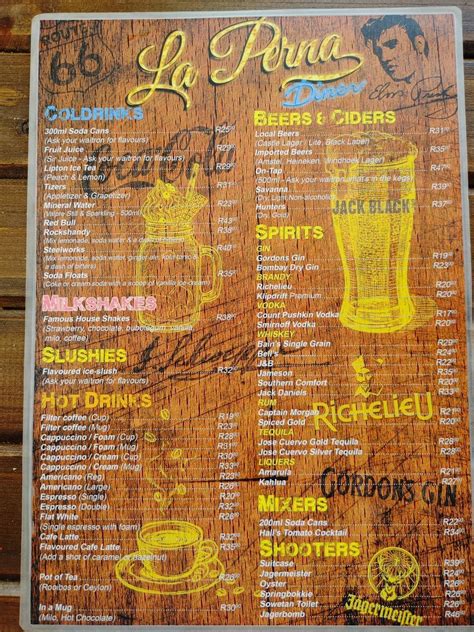 ROUTE
66
La Perna
Diner
Elvis Presley
COLDRINKS
300ml Soda Cans R25
(Ask your waitron for flavours)
Fruit Juice R29
(Sir Juice - Ask your waitron for flavours)
Lipton Ice Tea R29
(Peach & Lemon)
Tizers R31
(Appletizer & Grapetizer)
Mineral Water R23
(Valpre Still & Sparkling - 500ml)
Red Bull R43
Rockshandy R38
(Mix lemonade, soda water & a dash of bitters)
Steelworks R40
(Mix lemonade, soda water, ginger ale, kola tonic &
a dash of bitters)
Soda Floats R35
(Coke or cream soda with a scoop of vanilla ice cream)
Coca Cola
MILKSHAKES
Famous House Shakes R38
(Strawberry, chocolate, bubblegum, vanilla, milo, coffee)
SLUSHIES
Flavoured ice-slush R32
(Ask your waitron for flavours)
HOT DRINKS
Filter coffee (Cup) R19
Filter coffee (Mug) R23
Cappuccino / Foam (Cup) R28
Cappuccino / Foam (Mug) R31
Cappuccino / Cream (Cup) R30
Cappuccino / Cream (Mug) R33
Americano (Reg) R23
Americano (Large) R27
Espresso (Single) R20
Espresso (Double) R32
Flat White R26
(Single espresso with foam)
Cafe Latte R32
Flavoured Cafe Latte R35
(Add a shot of caramel or hazelnut)
Pot of Tea R26
(Rooibos or Ceylon)
In a Mug R30
(Milo, Hot Chocolate)
BEERS & CIDERS
Local Beers R31
(Castle Lager - Lite, Black Label)
Imported Beers R35
(Amstel, Heineken, Windhoek Lager)
On-Tap R47
(500ml - Ask your waitron what's in the kegs)
Savanna R39
(Dry, Light Non-alcoholic)
Hunters R37
(Dry, Gold)
JACK BLACK
SPIRITS
GIN
Gordons Gin R19
Bombay Dry Gin R23
BRANDY
Richelieu R20
Klipdrift Premium R20
VODKA
Count Pushkin Vodka R17
Smirnoff Vodka R18
WHISKEY
Bain's Single Grain R29
Bell's R24
J&B R24
Jameson R35
Southern Comfort R24
Jack Daniels R30
RUM
Captain Morgan R21
Spiced Gold R20
TEQUILA
Jose Cuervo Gold Tequila R28
Jose Cuervo Silver Tequila R28
LIQUERS
Amarula R21
Kahlua R27
RICHELIEU
GORDONS GIN
MIXERS
200ml Soda Cans R22
Hall's Tomato Cocktail R34
SHOOTERS
Suitcase R39
Jagermeister R24
Oyster R24
Springbokkie R24
Sowetan Toilet R24
Jagerbomb R46
Jägermeister